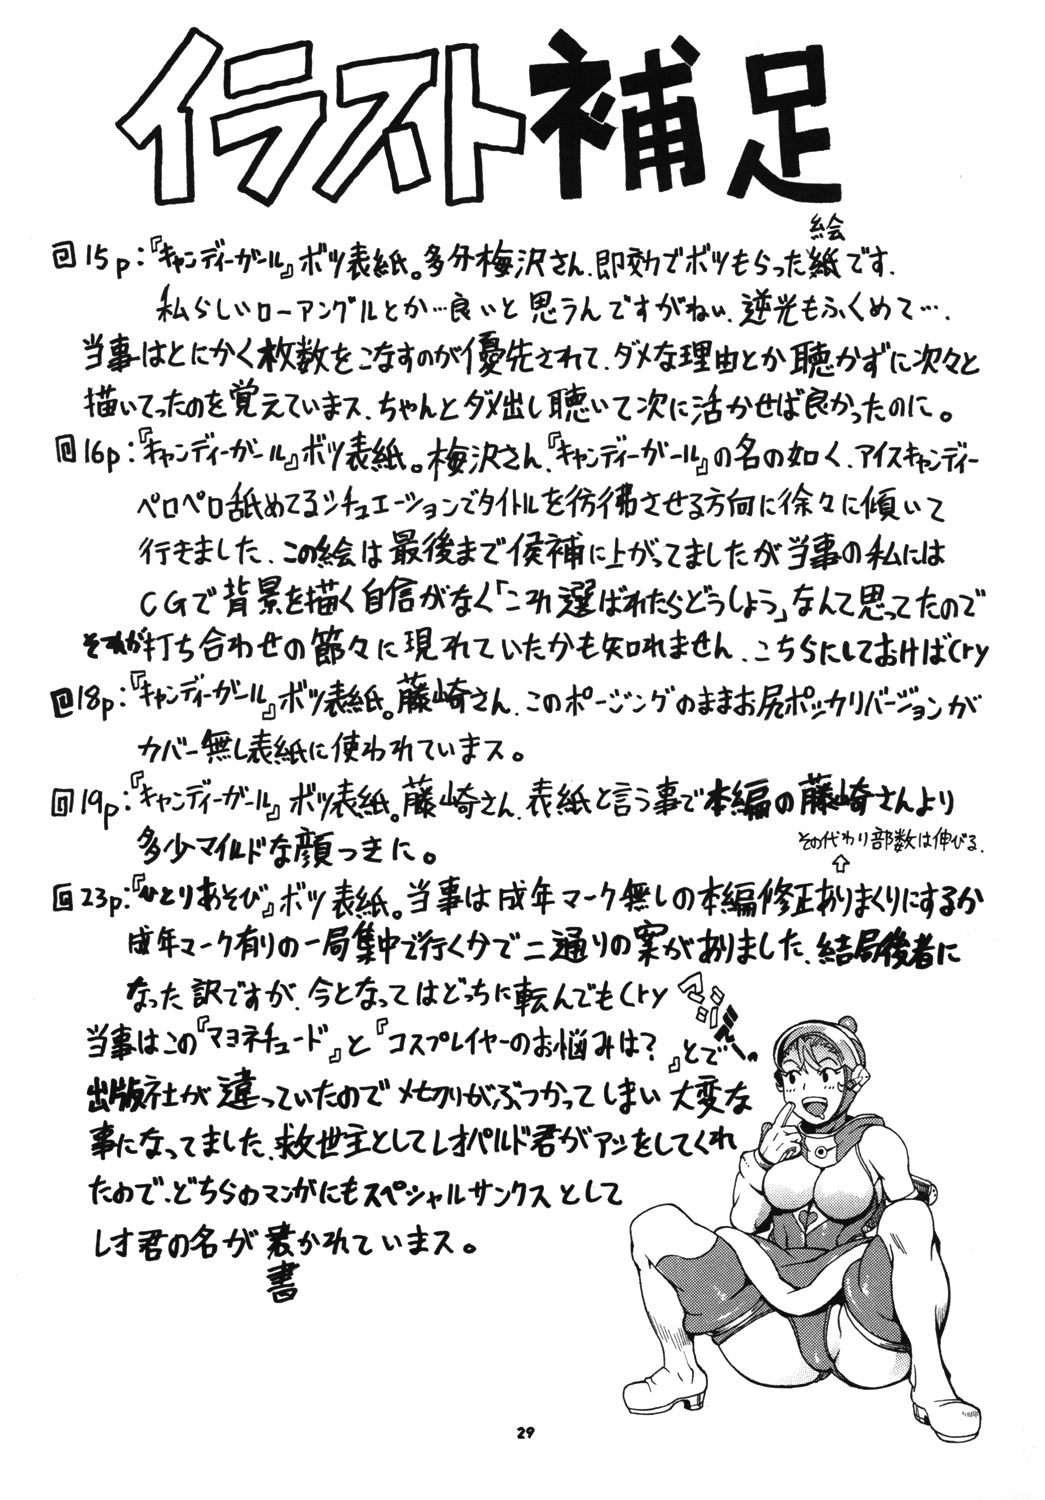 イラスト補足
回15p:『キャンディーガール』ボツ表紙。多分梅沢さん、即効でボツもらった紙です。
絵
私らしいローアングルとか…良いと思うんですがねぃ、逆光もふくめて…。
当事はとにかく枚数をこなすのが優先されて、ダメな理由とか聴かずに次々と
描いてったのを覚えていまス、ちゃんとダメ出し聴いて次に活かせば良かったのに。
回16p:『キャンディーガール』ボツ表紙。梅沢さん、『キャンディーガール』の名の如く、アイスキャンディー
ペロペロ舐めてるシチュエーションでタイトルを彷彿させる方向に徐々に傾いて
行きました、この絵は最後まで候補に上がってましたが当事の私には
CGで背景を描く自信がなく「これ選ばれたらどうしよう」なんて思ってたので
それが打ち合わせの節々に現れていたかも知れません、こちらにしておけばCry
回18p:『キャンディーガール』ボツ表紙。藤崎さん、このポージングのままお尻ポッカリバージョンが
カバー無し表紙に使われていまス。
回19p:『キャンディーガール』ボツ表紙。藤崎さん、表紙と言う事で本編の藤崎さんより
多少マイルドな顔つきに。
その代わり部数は伸びる。
⇧
回23p:『ひとりあそび』ボツ表紙。当事は成年マーク無しの本編修正ありまくりにするか
成年マーク有りの一局集中で行くかで二通りの案がありました、結局後者に
なった訳ですが、今となってはどっちに転んでもCry
マジでー
当事はこの『マヨネチュード』と『コスプレイヤーのお悩みは?』とで
出版社が違っていたのでメ切りがぶつかってしまい大変な
事になってました、救世主としてレオパルド君がアシをしてくれ
たので、どちらのマンガにもスペシャルサンクスとして
レオ君の名が書かれていまス。
書
29